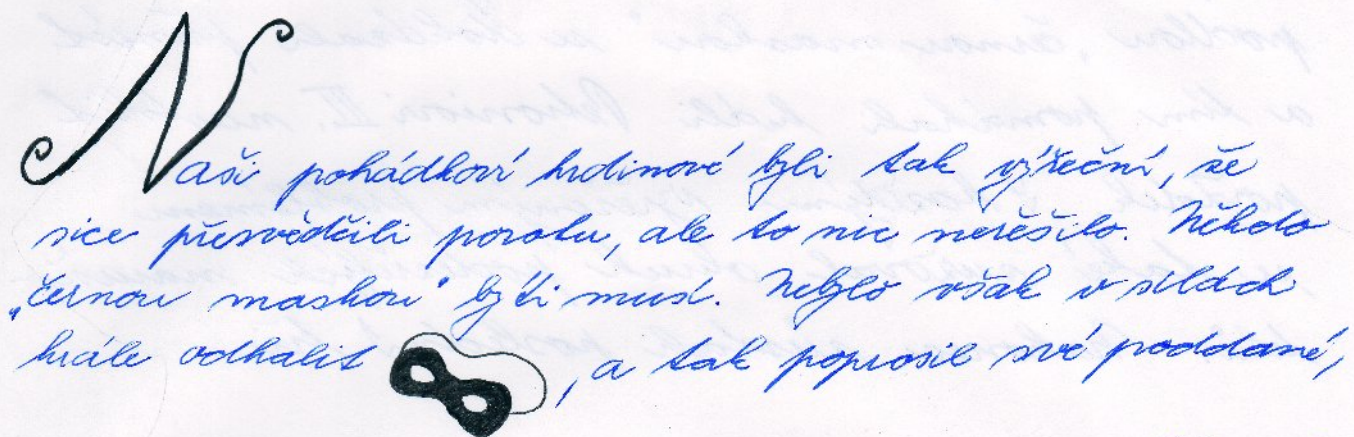 Naši pohádkoví hrdinové byli tak výřeční, že
sice přesvědčili porotu, ale to nic neřešilo. Někdo
„černou maskou“ býti musí. Nebylo však v silách
krále odhalit , a tak poprosil své poddané,